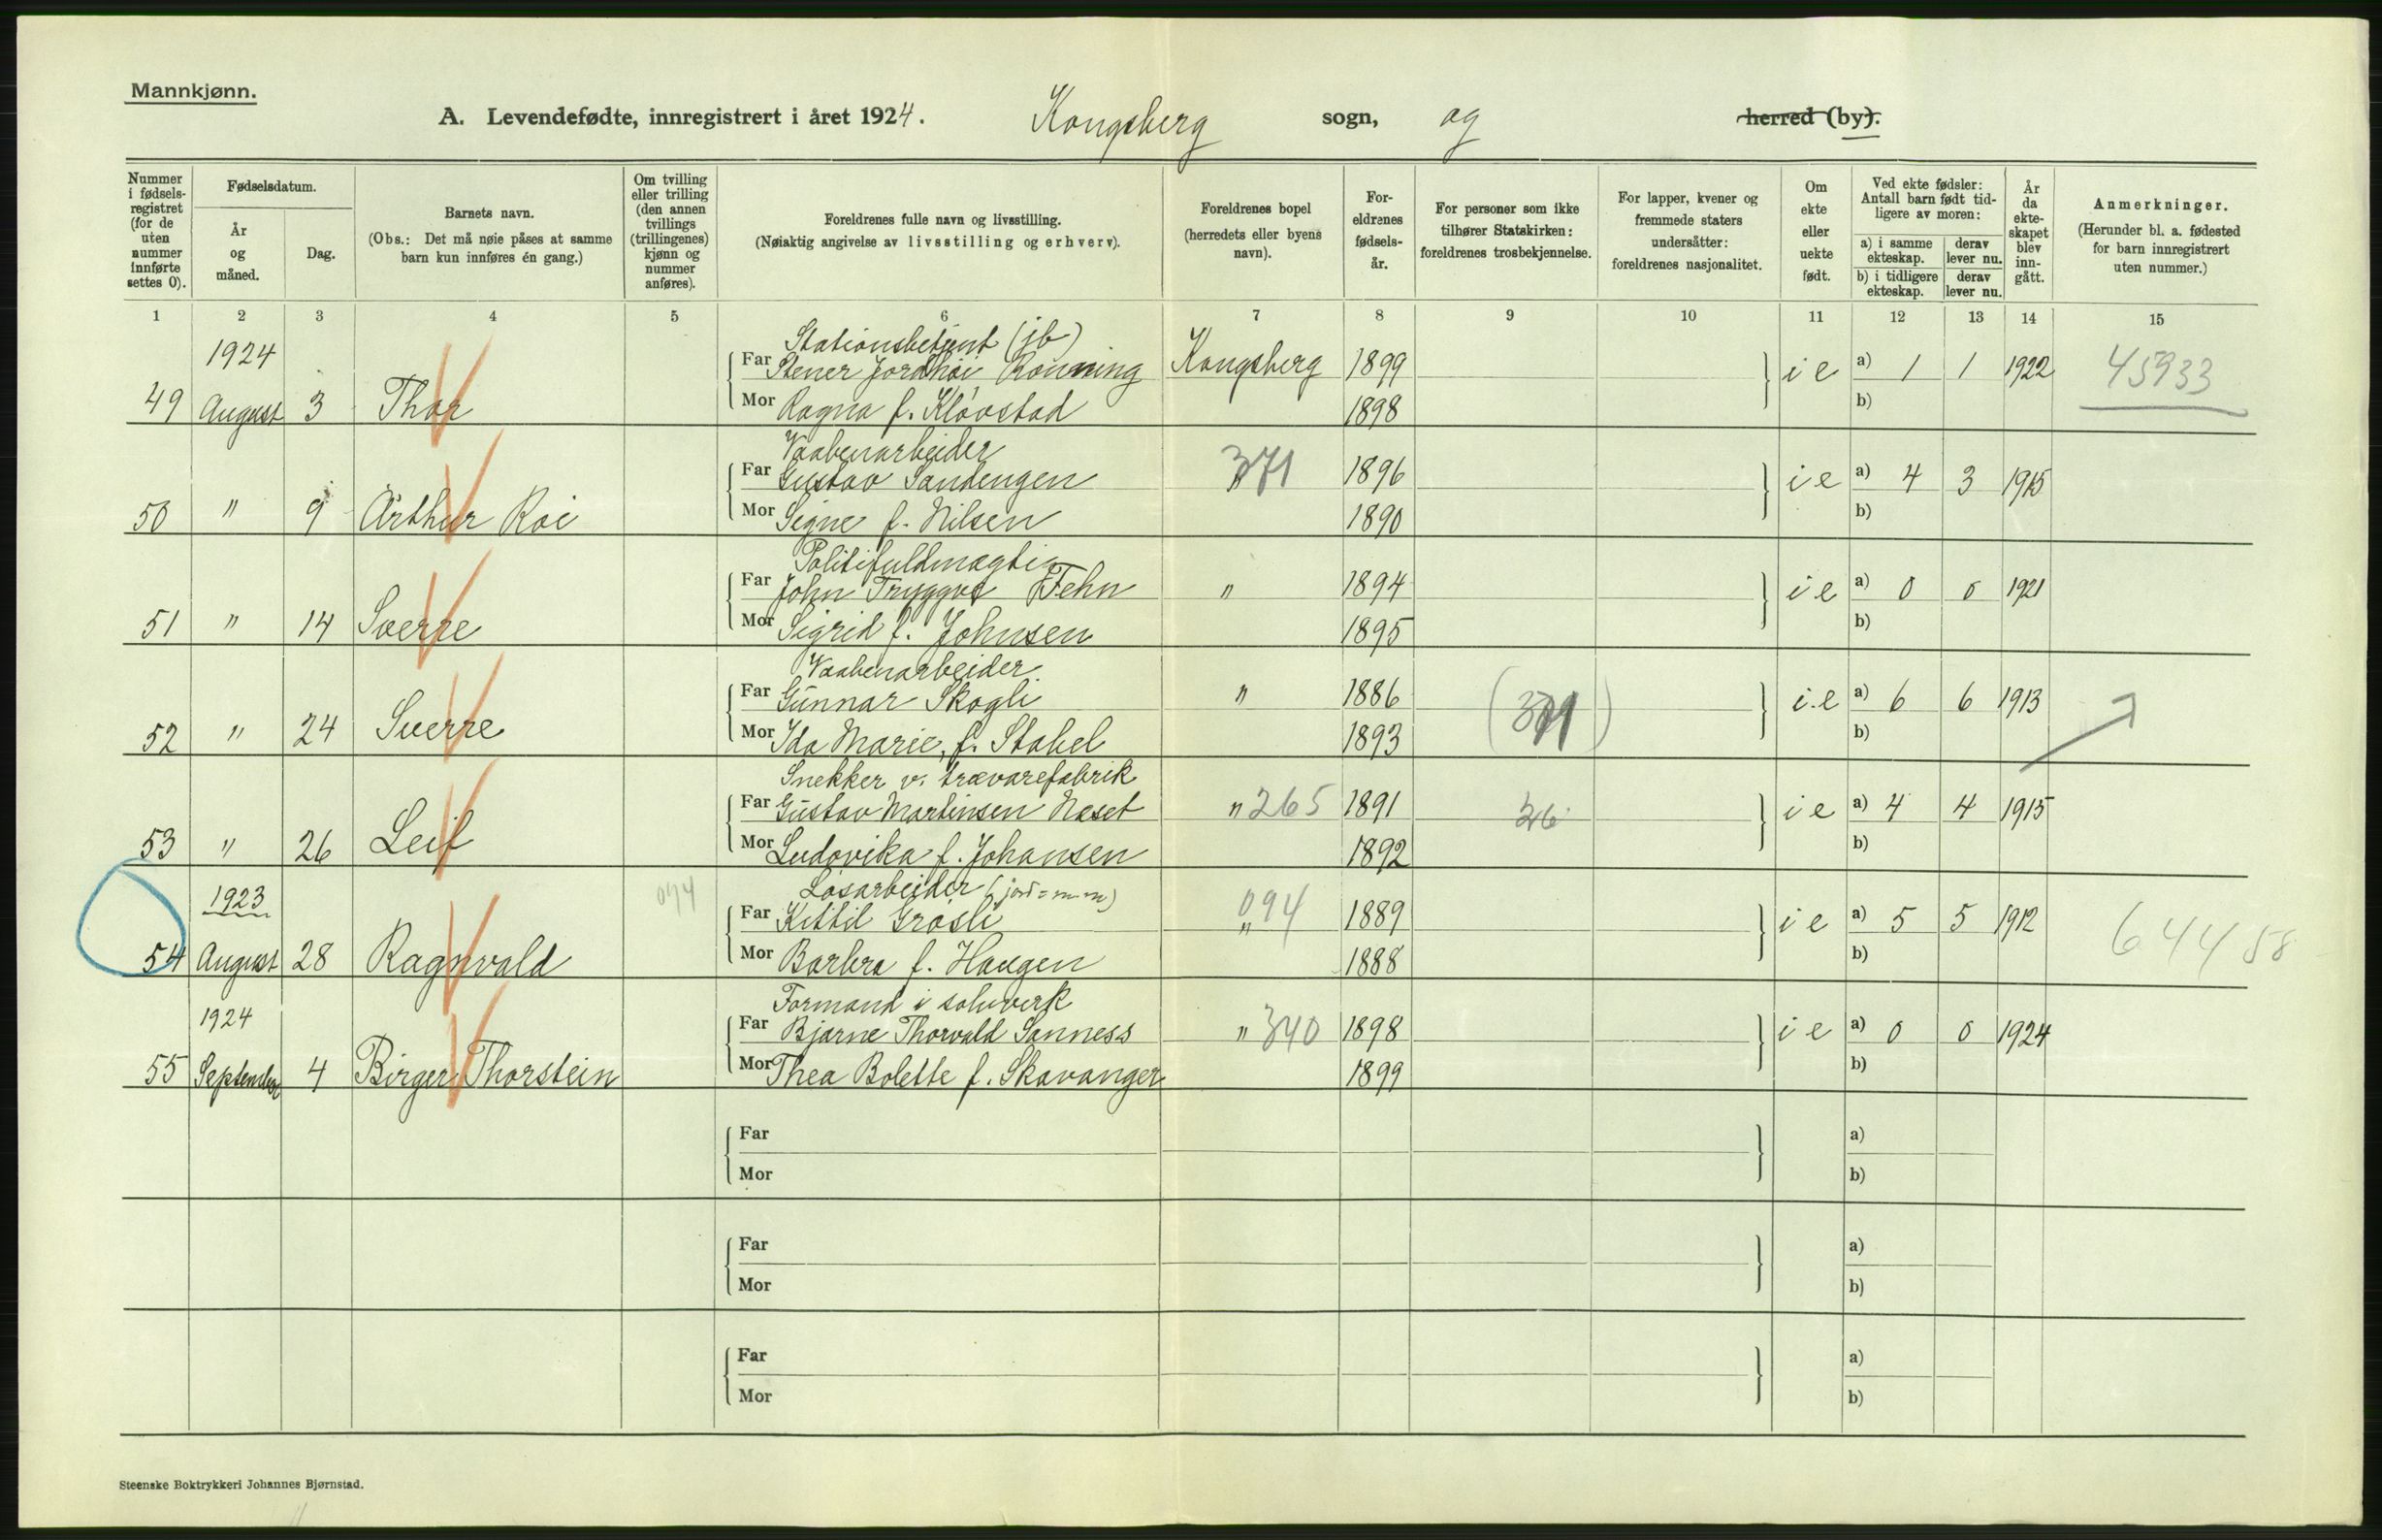 Mannkjønn.
A. Levendefødte, innregistrert i året 1924. Kongsberg sogn, og herred (by).
Nummer i fødsels-registret (for de uten nummer innførte settes 0).
Fødselsdatum.
År og måned.
Dag.
Barnets navn.
(Obs.: Det må nøie påses at samme barn kun innføres én gang.)
Om tvilling eller trilling (den annen tvillings (trillingenes) kjønn og nummer anføres).
Foreldrenes fulle navn og livsstilling.
(Nøiaktig angivelse av livsstilling og erhverv).
Foreldrenes bopel (herredets eller byens navn).
For-eldrenes fødsels-år.
For personer som ikke tilhører Statskirken: foreldrenes trosbekjennelse.
For lapper, kvener og fremmede staters undersåtter: foreldrenes nasjonalitet.
Om ekte eller uekte født.
Ved ekte fødsler: Antall barn født tid-ligere av moren:
a) i samme ekteskap.
derav lever nu.
b) i tidligere ekteskap.
derav lever nu.
År da ekte-skapet blev inn-gått.
Anmerkninger.
(Herunder bl. a. fødested for barn innregistrert uten nummer.)
1 2 3 4 5 6 7 8 9 10 11 12 13 14 15
1924 Stationsbetjent (jb)
Far Stener Jordhøi Rønning Kongsberg 1899 i e a) 1 1 1922 45933
49 August 3 Thor Mor Ragna f. Kløvstad 1898 b)
Vaabenarbeider
Far Gustav Sandengen " 371 1896 i e a) 4 3 1915
50 " 9 Arthur Roi Mor Signe f. Nilsen 1890 b)
Politifuldmægtig
Far John Tryggve Fehn " 1894 i e a) 0 0 1921
51 " 14 Sverre Mor Sigrid f. Johnsen 1895 b)
Vaabenarbeider
Far Gunnar Skogli " 1886 (371) i.e a) 6 6 1913
52 " 24 Sverre Mor Ida Marie, f. Stabel 1893 b)
Snekker v. trævarefabrik
Far Gustav Martinsen Næset " 265 1891 26 i e a) 4 4 1915
53 " 26 Leif Mor Ludovika f. Johansen 1892 b)
1923 094 Løsarbeider
Far Kittil Grøsli " 094 1889 i e a) 5 5 1912 64458
54 August 28 Ragnvald Mor Barbra f. Haugen 1888 b)
1924 Formand i sølvverk
Far Bjarne Thorvald Sanness " 340 1898 i e a) 0 0 1924
55 September 4 Birger Thorstein Mor Thea Bolette f. Skavanger 1899 b)
Far a)
Mor b)
Far a)
Mor b)
Far a)
Mor b)
Steenske Boktrykkeri Johannes Bjørnstad.